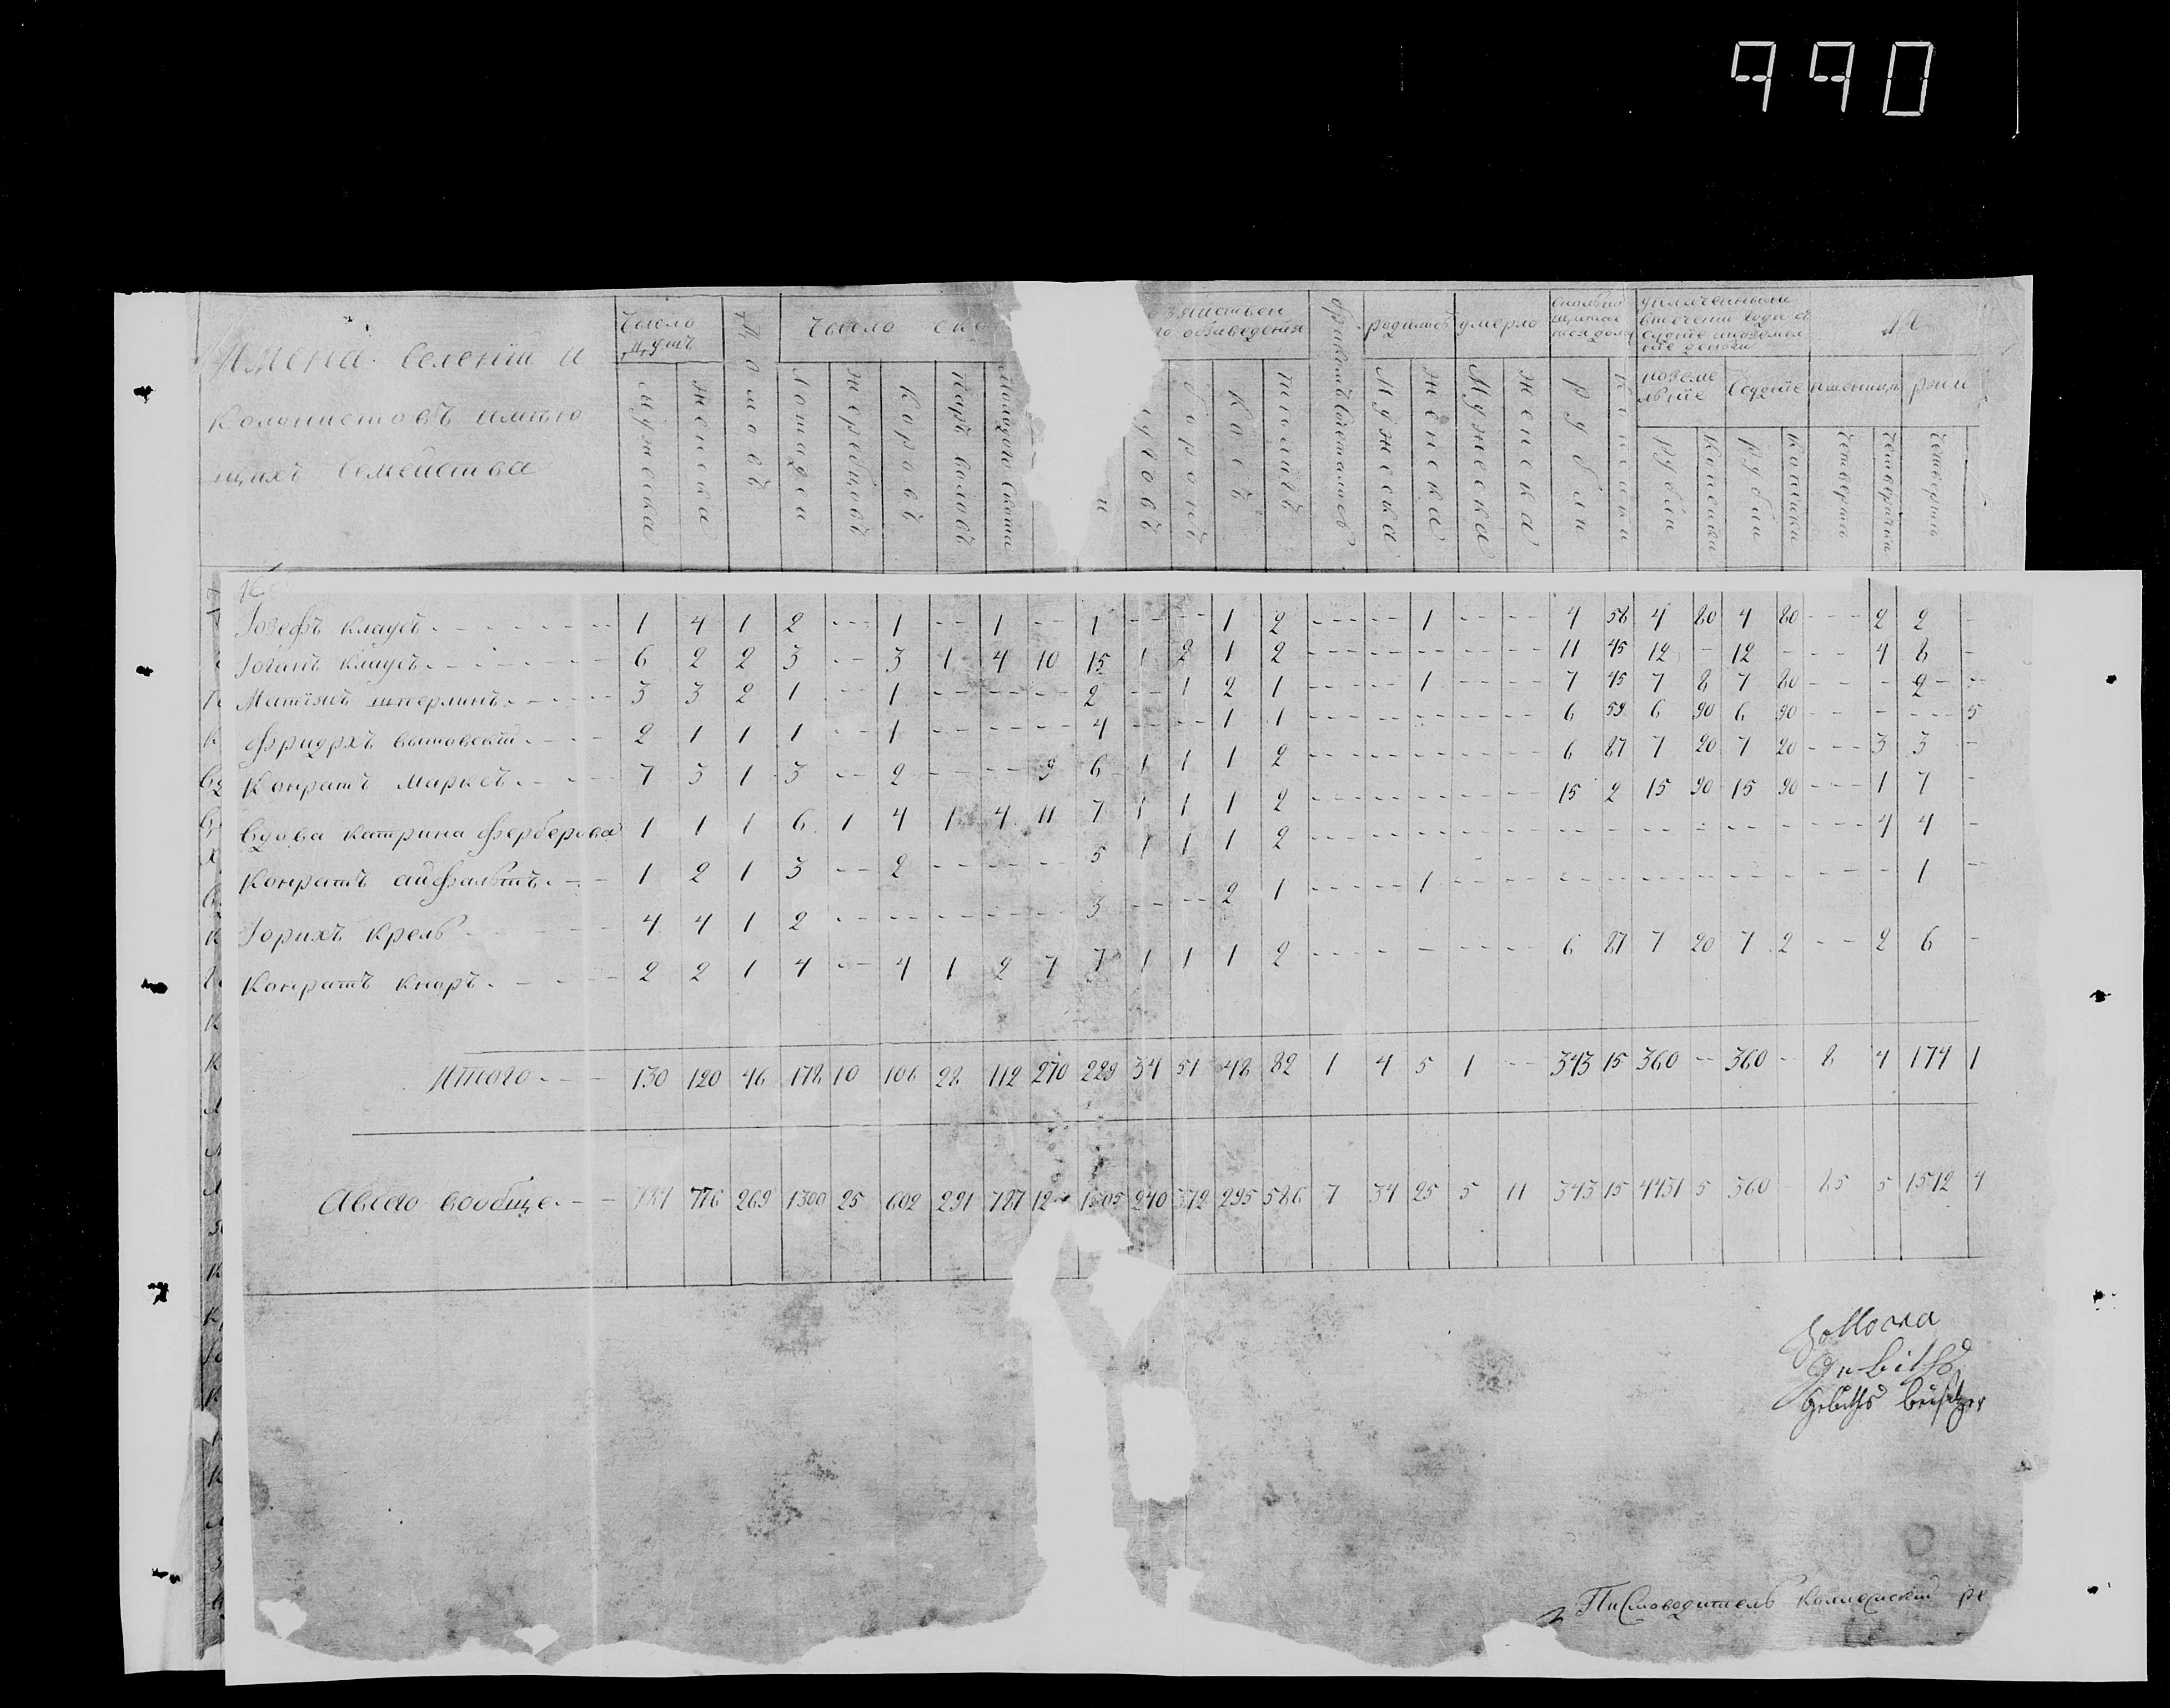 990
Имена Селенiи и
Колонистовъ имѣю
щихъ Семейства
Число
душъ
Домовъ
Число ско
зяиствен
го обзаведения
родилось
умерло
мужеска
женска
Лошадеи
жеребцовъ
Коровъ
паръ воловъ
Молодого скота
боронъ
Косъ
Мужеска
женска
Мужеска
женска
рубли
поземе
льные
Ссудные
пшеницы
ржи
рубли
Копеики
рубли
Копеики
Четверти
Четверики
Четверти
Іозефъ Клаусъ 1 4 1 2 -- 1 -- 1 -- 1 -- -- 1 2 -- -- 1 -- -- 4 58 4 80 4 80 -- 2 2 -
Іоганъ Клаусъ 6 2 2 3 -- 3 1 4 10 15 1 2 1 2 -- -- -- -- -- 11 45 12 - 12 - -- 4 8 -
Матіасъ штерлинъ 3 3 2 1 -- 1 -- -- -- 2 -- 1 2 1 -- -- 1 -- -- 7 45 7 8 7 80 -- - 2 -
Фридрхъ вытовскiи 2 1 1 1 -- 1 -- -- -- 4 -- -- 1 1 -- -- -- -- -- 6 59 6 90 6 90 -- - -- 5
Конратъ Марксъ 7 3 1 3 -- 2 -- -- 9 6 1 1 1 2 -- -- -- -- -- 6 87 7 20 7 20 -- 3 3 -
Вдова катрина Ферберова 1 1 1 6 1 4 1 4 11 7 1 1 1 2 -- -- -- -- -- 15 2 15 90 15 90 -- 1 7 -
Конратъ аифальтъ 1 2 1 3 -- 2 -- -- -- 5 1 1 1 2 -- -- -- -- -- -- -- -- -- -- -- -- 4 4 -
Іорихъ Крель 4 4 1 2 -- -- -- -- -- 3 -- -- 2 1 -- -- 1 -- -- -- -- -- -- -- -- -- - 1 -
Конратъ Кноръ 2 2 1 4 -- 4 1 2 7 7 1 1 1 2 -- - - -- -- 6 87 7 20 7 2 -- 2 6 -
Итого 130 120 46 178 10 106 28 112 270 229 34 51 48 82 1 4 5 1 -- 343 15 360 -- 360 -- 8 4 174 1
Авсего вообще 776 269 1300 25 602 291 787 240 372 295 586 7 34 25 5 11 343 15 4431 5 360 - 5 1542 4
Gebiths
Gebiths beisitzer
Писмоводитель Колежскiи ре